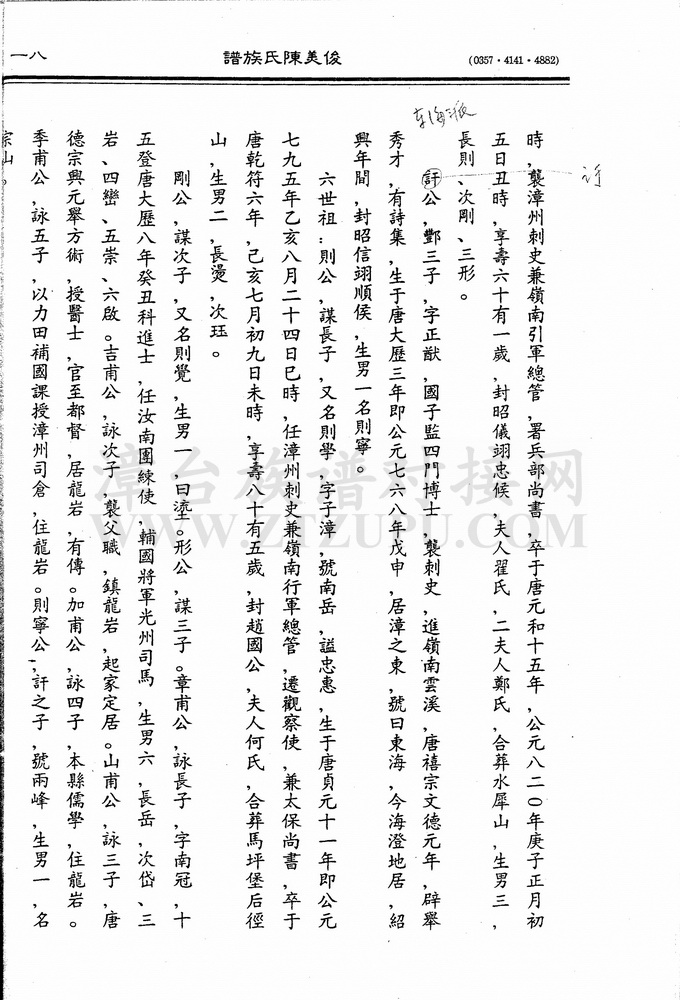 (0357·4141·4882)
俊美陳氏族譜
一八
东海派
讦
時,襲漳州刺史兼嶺南引軍總管,署兵部尚書,卒于唐元和十五年,公元八二〇年庚子正月初
五日丑時,享壽六十有一歲,封昭儀翊忠候,夫人翟氏,二夫人鄭氏,合葬水犀山,生男三,
長則、次剛、三形。
訏公,酆三子,字正猷,國子監四門博士,襲刺史,進嶺南雲溪,唐禧宗文德元年,辟舉
秀才,有詩集,生于唐大歷三年即公元七六八年戊申,居漳之東,號曰東海,今海澄地居,紹
興年間,封昭信翊順侯,生男一名則寧。
六世祖:則公,謀長子,又名則學,字子漳,號南岳,謚忠惠,生于唐貞元十一年即公元
七九五年乙亥八月二十四日巳時,任漳州刺史兼嶺南行軍總管,遷觀察使,兼太保尚書,卒于
唐乾符六年,己亥七月初九日未時,享壽八十有五歲,封趙國公,夫人何氏,合葬馬坪堡后徑
山,生男二,長燙,次珏。
剛公,謀次子,又名則覺,生男一,曰塗。形公,謀三子。章甫公,詠長子,字南冠,十
五登唐大歷八年癸丑科進士,任汝南團練使,輔國將軍光州司馬,生男六,長岳,次岱、三
岩、四巒、五崇、六啟。吉甫公,詠次子,襲父職,鎮龍岩,起家定居。山甫公,詠三子,唐
德宗興元舉方術,授醫士,官至都督,居龍岩,有傳。加甫公,詠四子,本縣儒學,住龍岩。
季甫公,詠五子,以力田補國課授漳州司倉,住龍岩。則寧公,訏之子,號兩峰,生男一,名
宗山。
漳台族谱对接网
WWW.ZTZUPU.COM